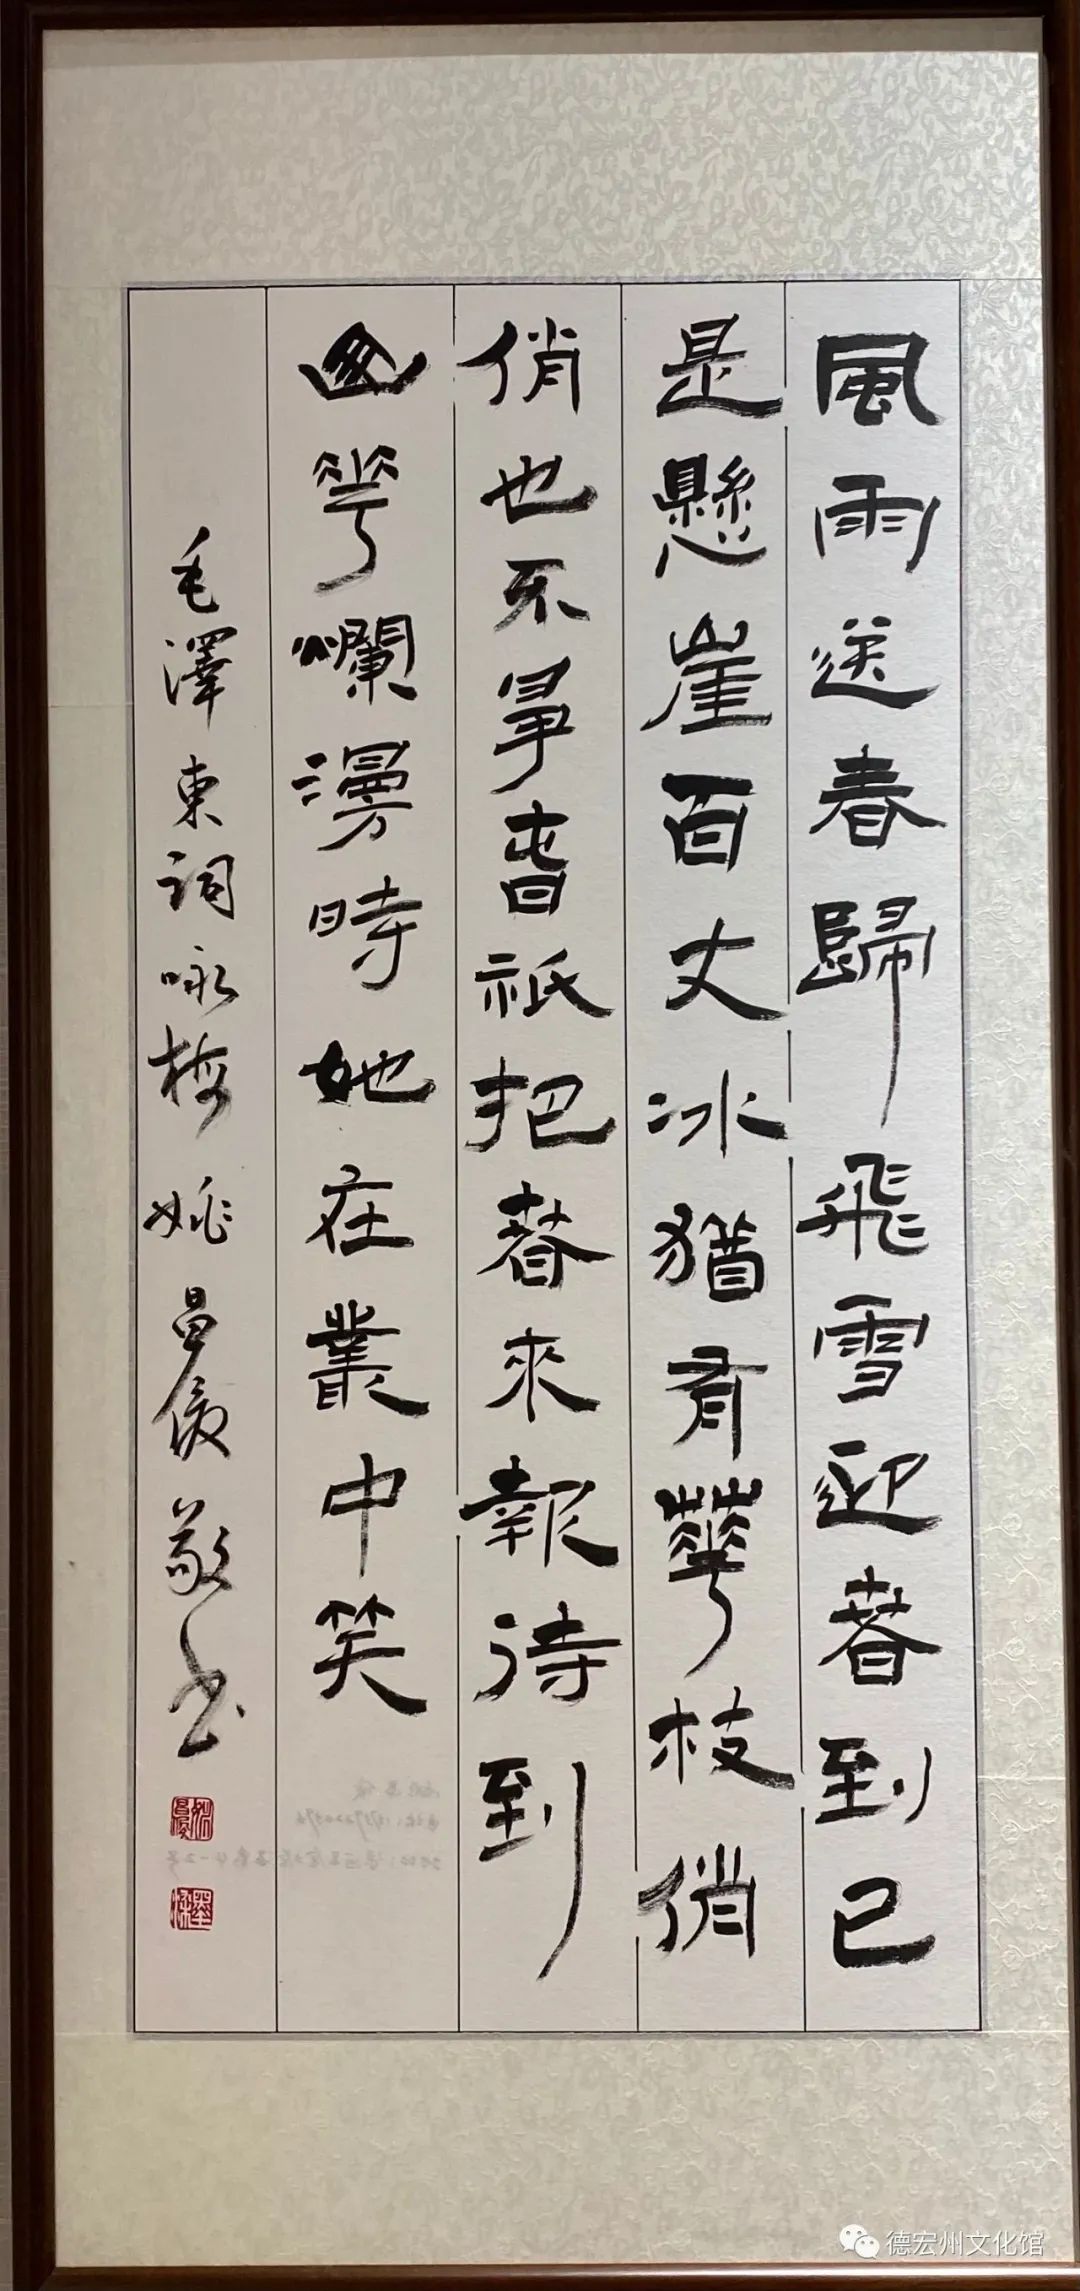 風雨送春歸飛雪迎春到已
是懸崖百丈冰猶有華枝俏
俏也不爭春祇把春來報待到
山花爛漫時她在叢中笑
毛澤東詞咏梅 姚昌俊敬书
德宏州文化馆